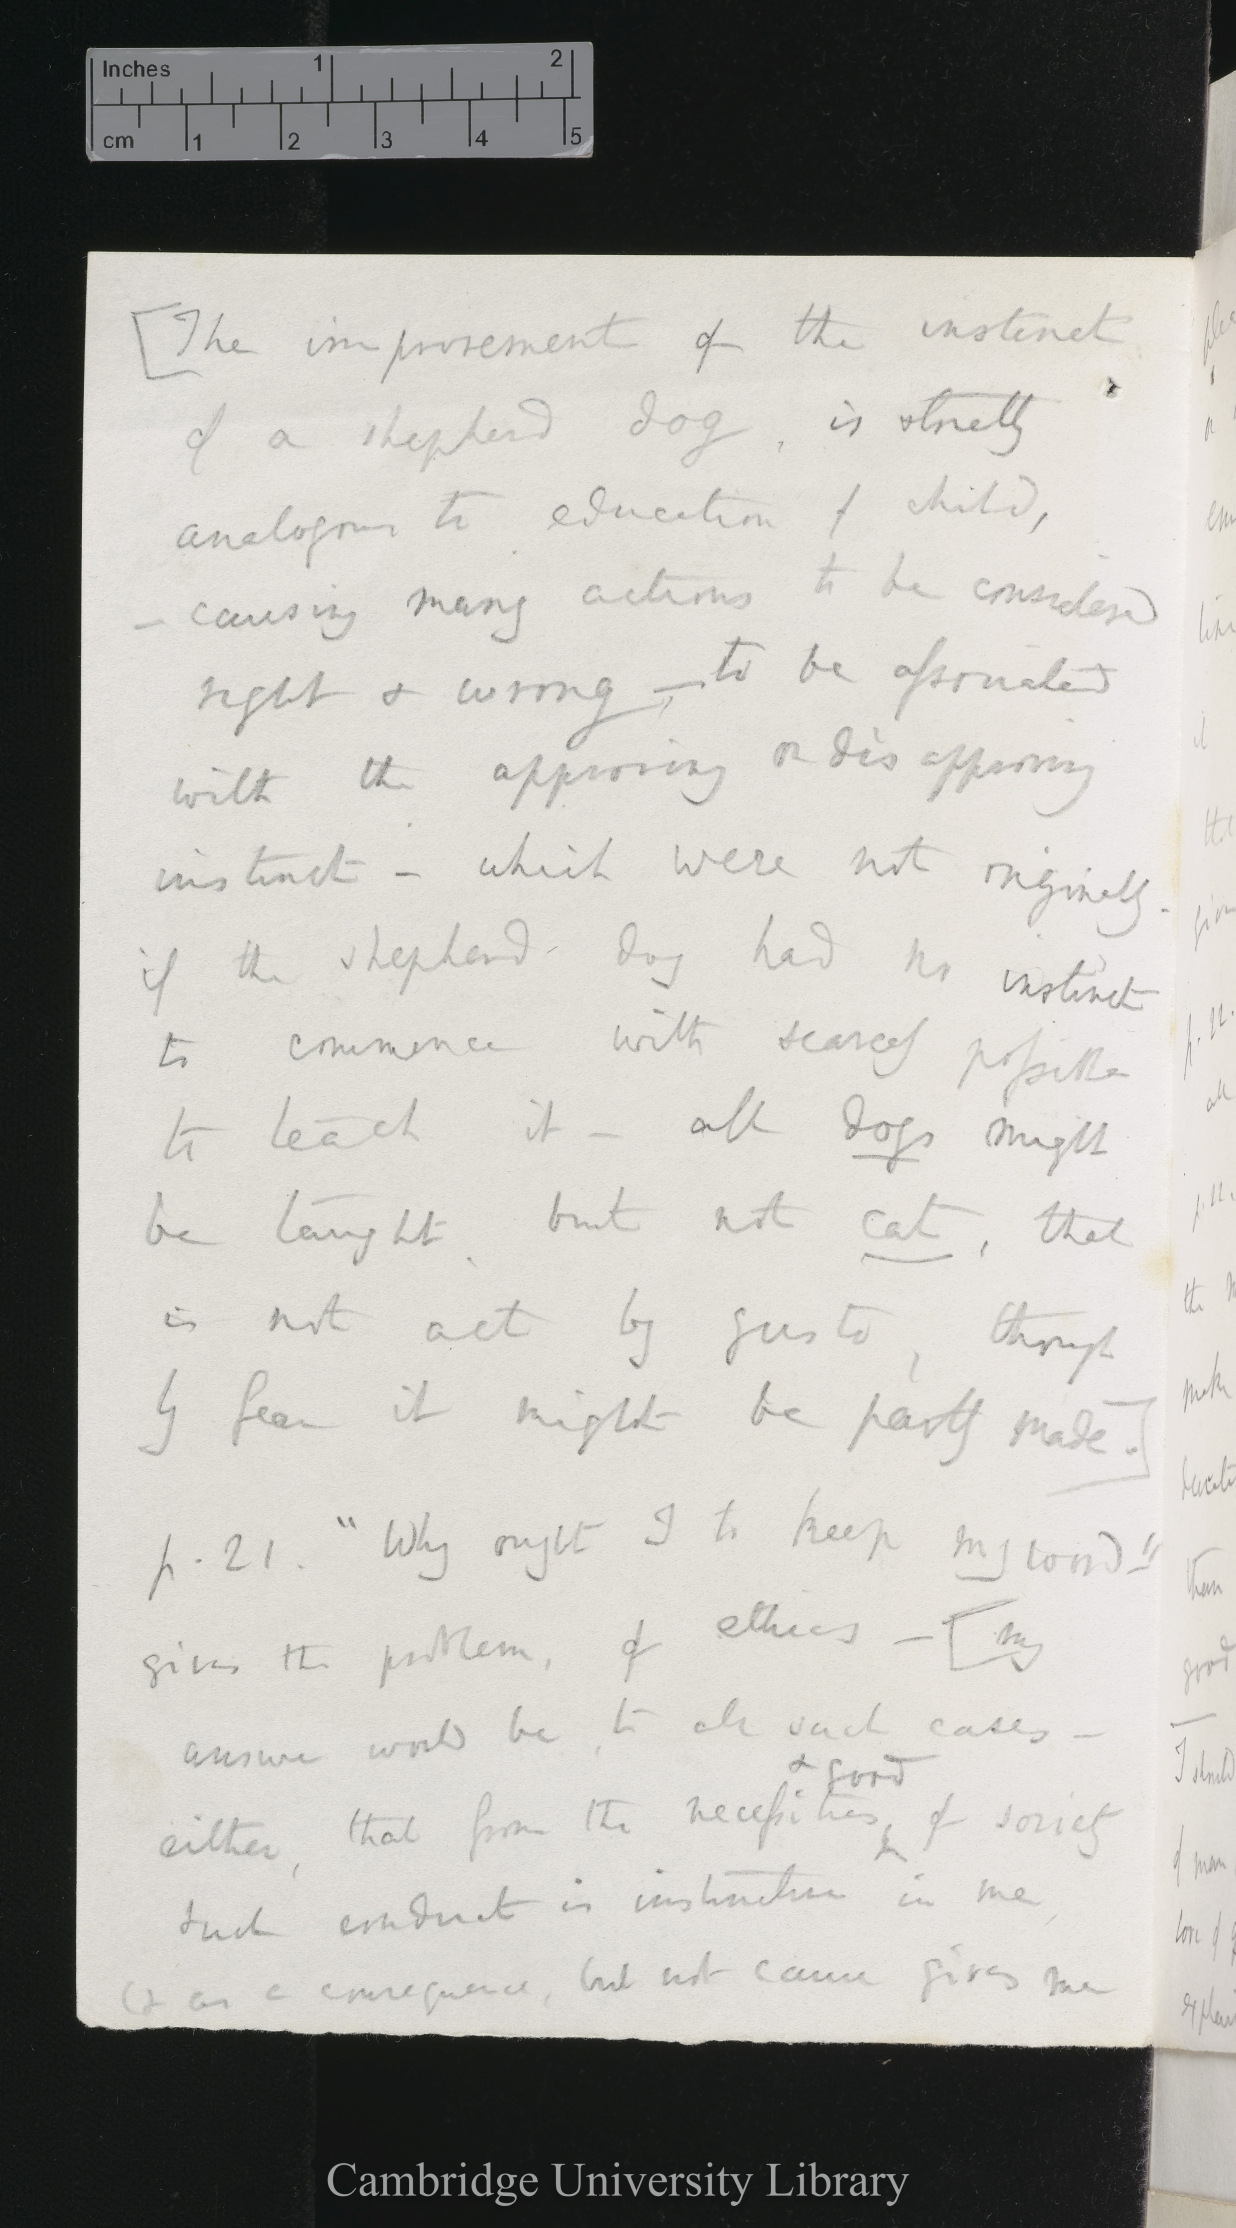 Inches 1 2
cm 1 2 3 4 5
[The improvement of the instinct
of a shepherd dog, is strictly
analogous to education of child,
— causing many actions to be considered
right & wrong, — to be associated
with the approving or disapproving
instinct — which were not originally.
if the shepherd-dog had no instinct
to commence with scarcely possible
to teach it — all dogs might
be taught but not cat, that
is not act by gusto, though
by fear it might be partly made.]
p. 21. "Why ought I to keep my word"
gives the problem, of ethics — [my
answer would be, to all such cases —
& good
either, that from the necessities of society
such conduct is instinctive in me,
(& as a consequence, but not cause gives me
p. 22.
all
the
make
than
good
I should
of man
love of
explain
Cambridge University Library